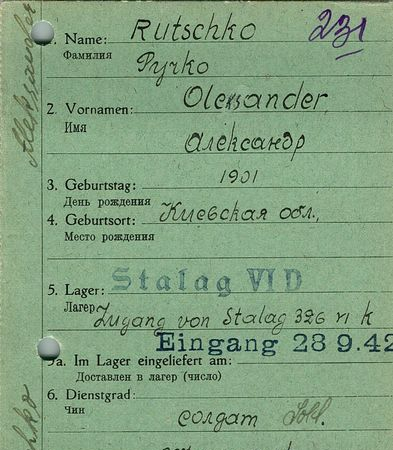 1. Name: Rutschko
231
Фамилия Ручко
2. Vornamen: Olexander
Имя
Александр
3. Geburtstag: 1901
День рождения
4. Geburtsort: Киевская обл.,
Место рождения
5. Lager: Stalag VI D
Лагерь Zugang von Stalag 326 VI K
Eingang 28 9.42
5a. Im Lager eingeliefert am:
Доставлен в лагерь (число)
6. Dienstgrad:
Чин
солдат Sold.
Aleksander